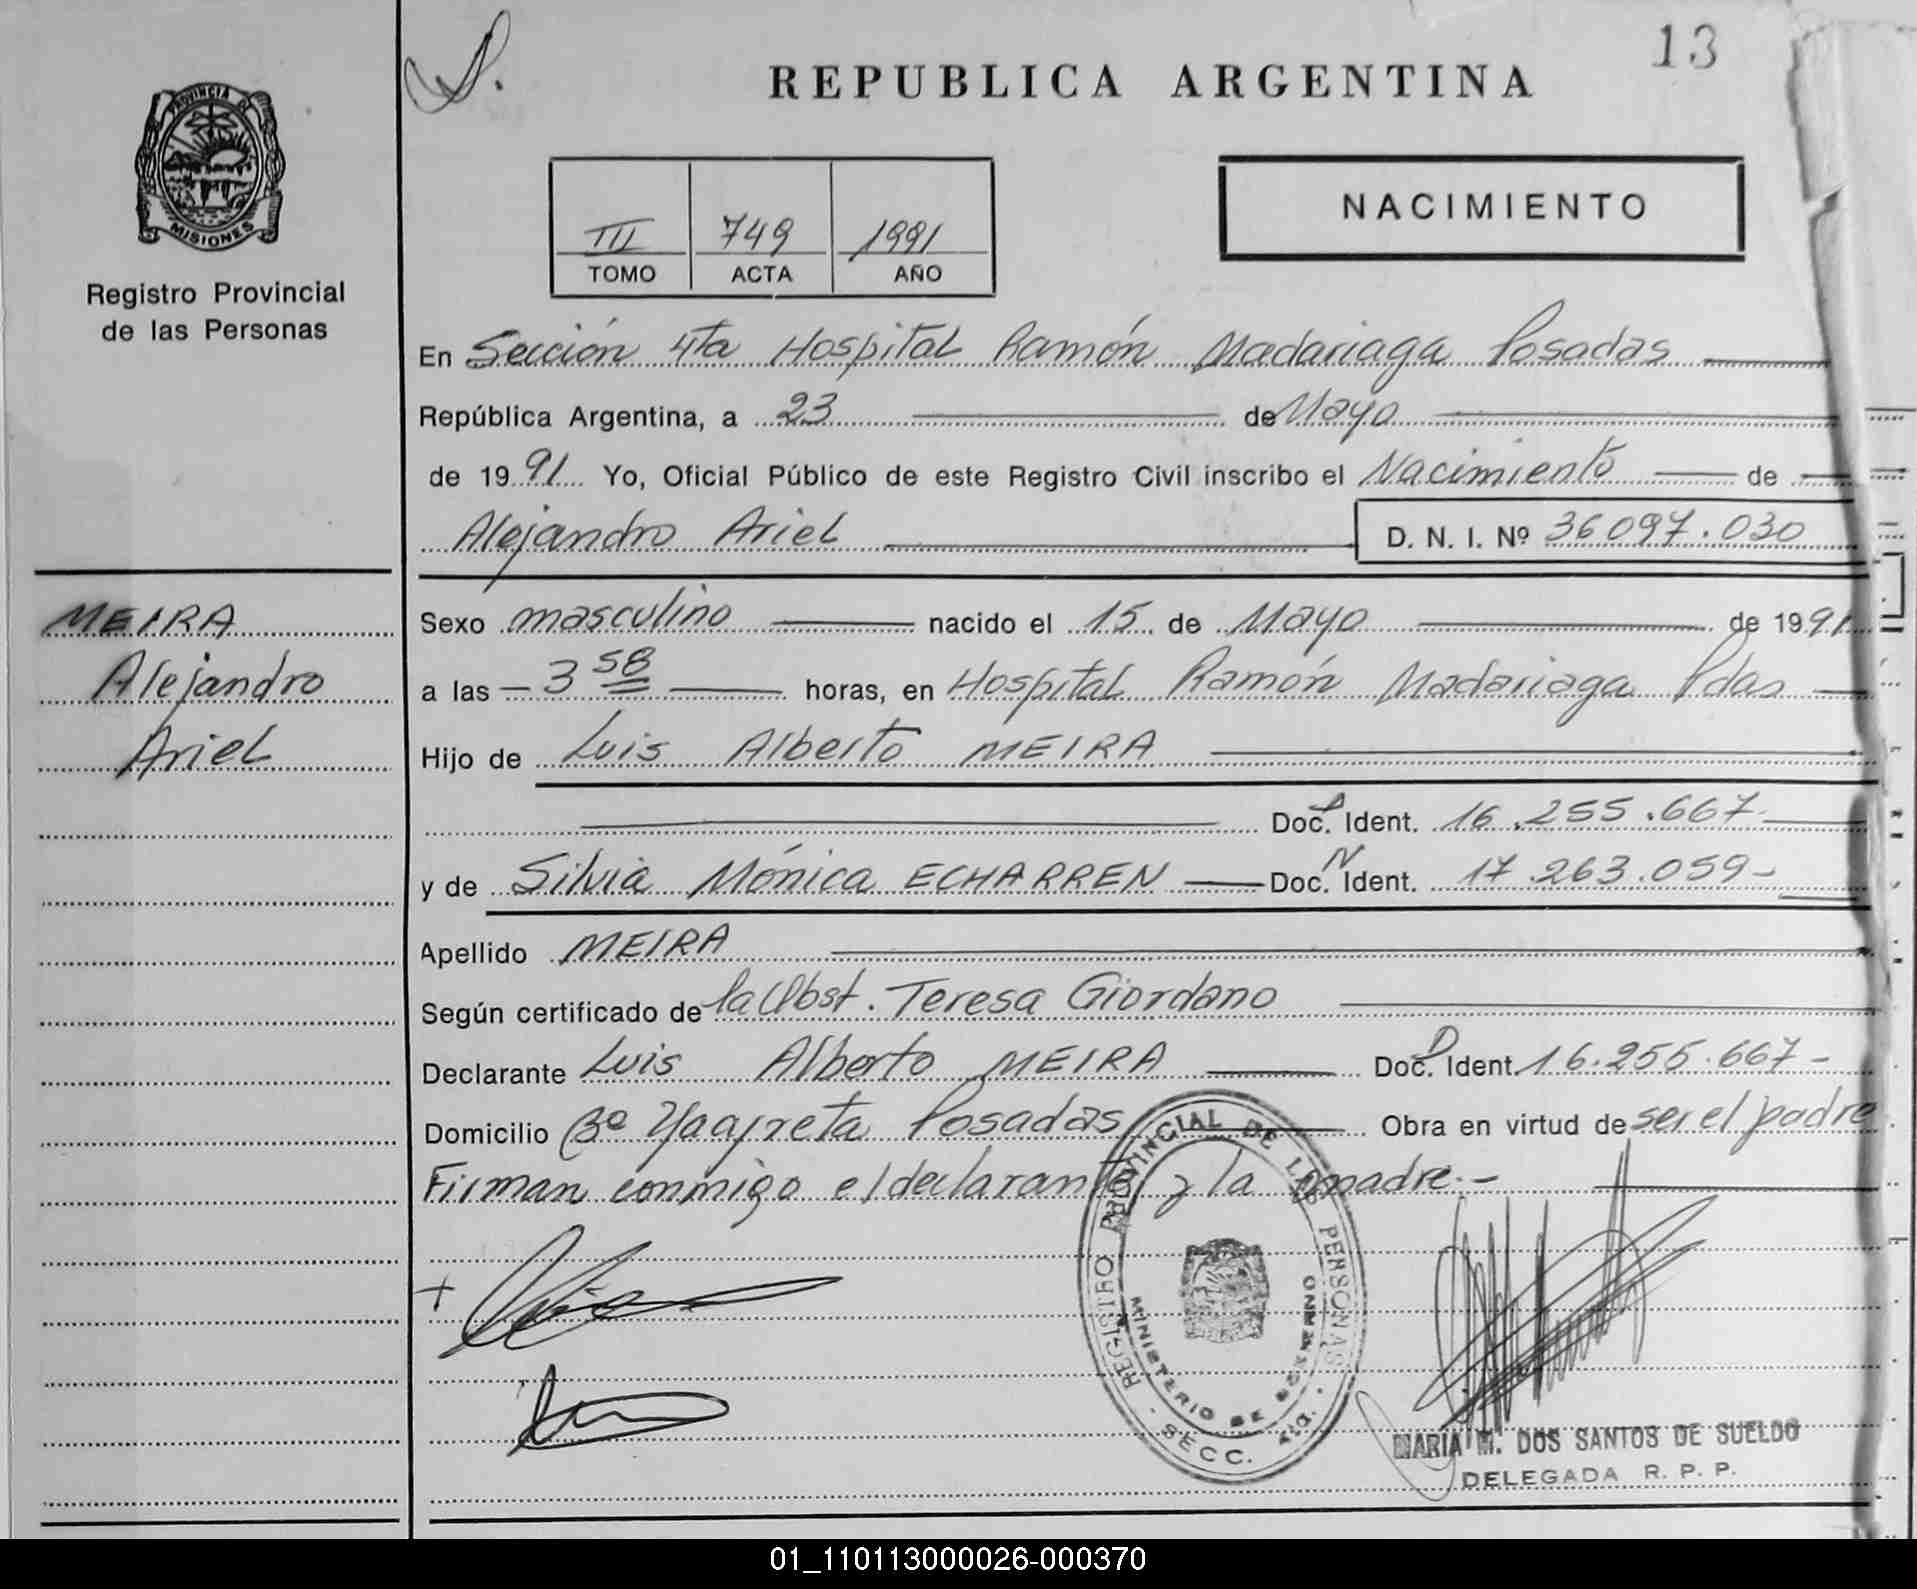 13
REPUBLICA ARGENTINA
PROVINCIA DE
MISIONES
Registro Provincial
de las Personas
III 749 1991
TOMO ACTA AÑO
NACIMIENTO
En Sección 4ta Hospital Ramón Madariaga Posadas
República Argentina, a 23 de Mayo
de 1991 Yo, Oficial Público de este Registro Civil inscribo el Nacimiento de
Alejandro Ariel D. N. I. Nº 36097.030
MEIRA
Alejandro
Ariel
Sexo masculino nacido el 15 de Mayo de 1991
a las 3 58 horas, en Hospital Ramón Madariaga Pdas
Hijo de Luis Alberto MEIRA
Doc. Ident. 16.255.667
y de Silvia Mónica ECHARREN Doc. Ident. 17.263.059
Apellido MEIRA
Según certificado de la Obst. Teresa Giordano
Declarante Luis Alberto MEIRA Doc. Ident. 16.255.667
Domicilio Bº Yacyreta Posadas Obra en virtud de ser el padre
Firman conmigo el declarante y la madre.
REGISTRO PROVINCIAL DE LAS PERSONAS
MINISTERIO DE GOBIERNO
SECC. 4ta.
MARIA M. DOS SANTOS DE SUELDO
DELEGADA R. P. P.
01_110113000026-000370